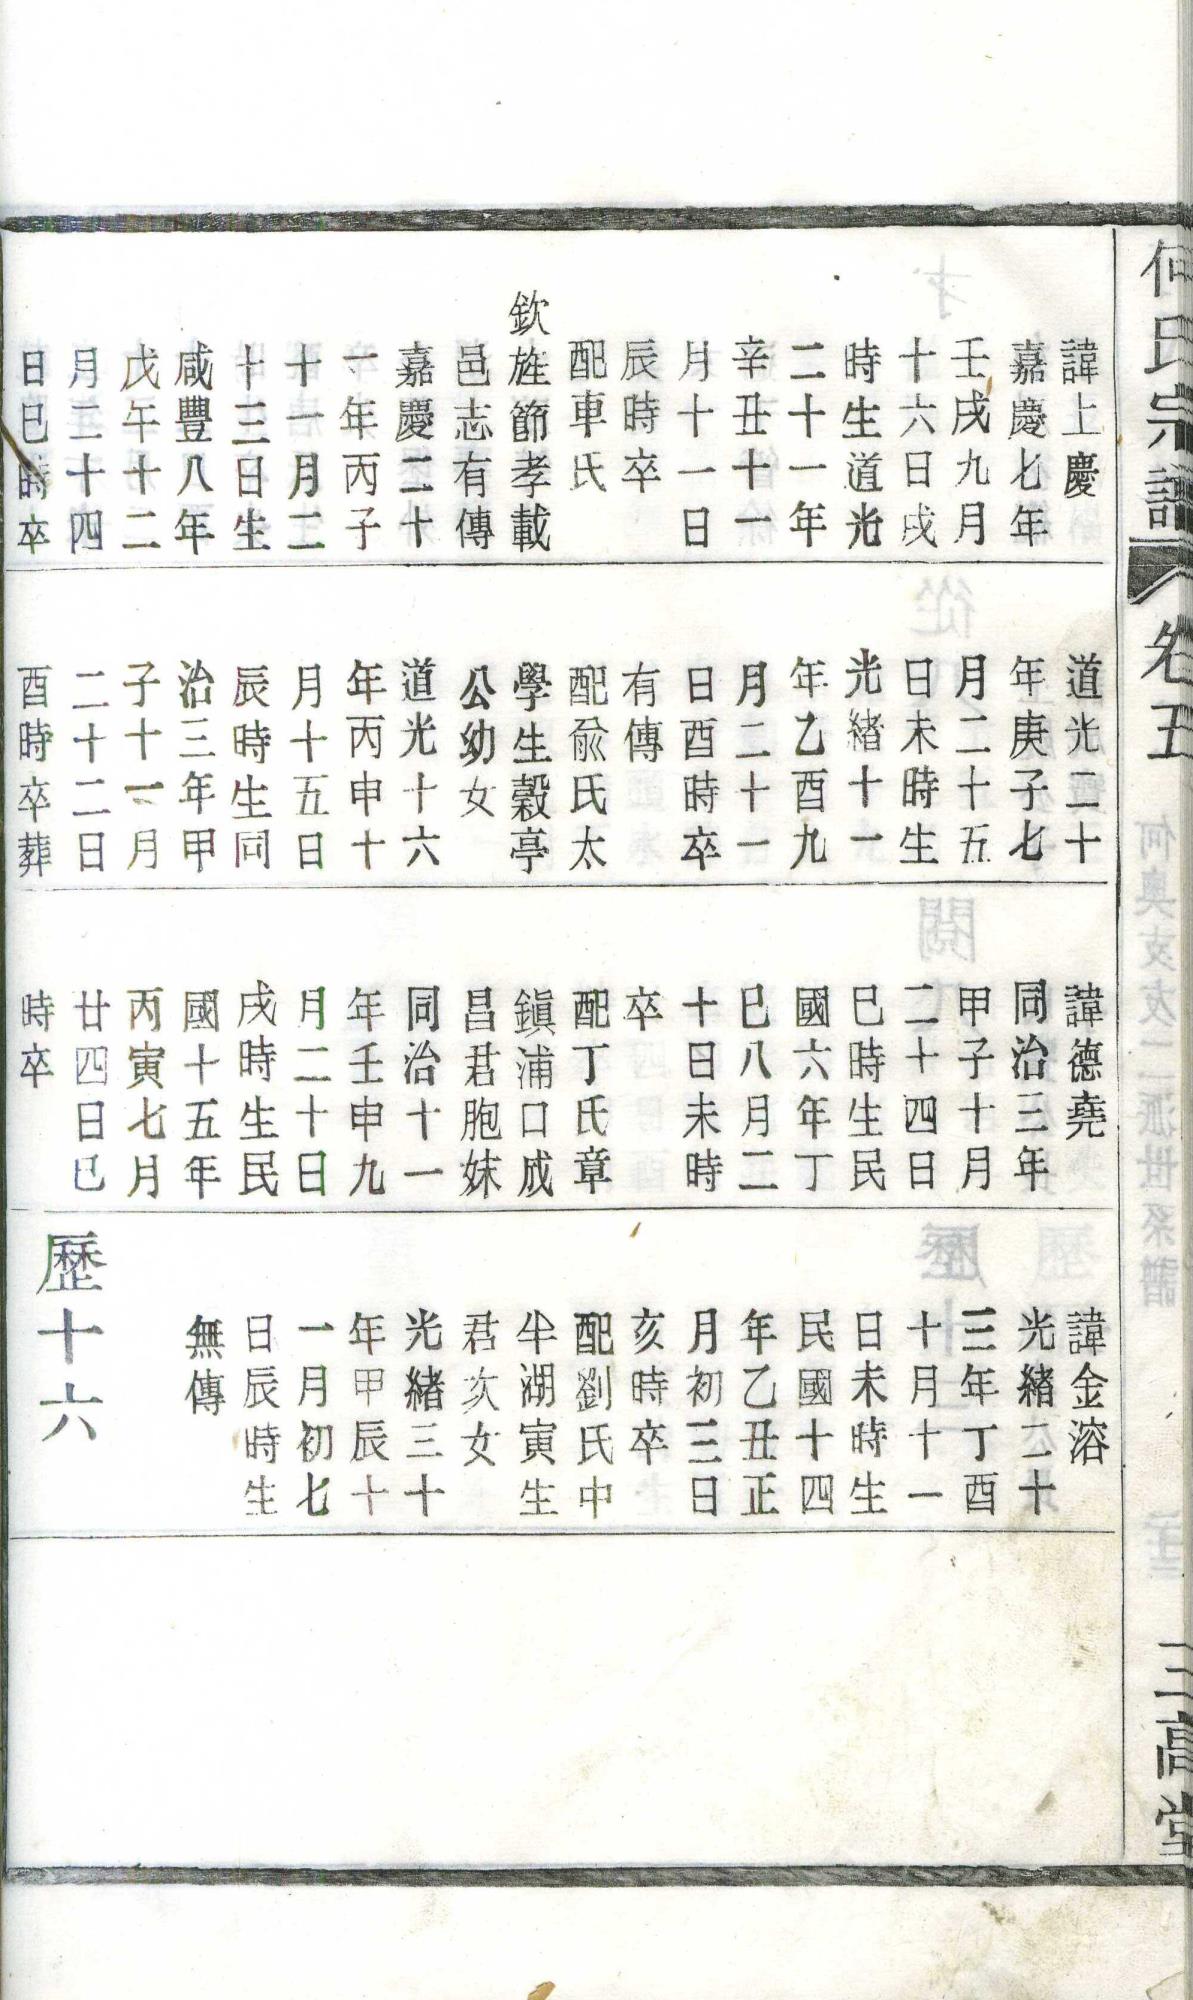 何氏宗譜
卷五
三高堂
諱上慶
嘉慶七年
壬戌九月
十六日戌
時生道光
二十一年
辛丑十一
月十一日
辰時卒
配車氏
欽旌節孝載
邑志有傳
嘉慶二十
一年丙子
十一月二
十三日生
咸豐八年
戊午十二
月二十四
日巳時卒
道光二十
年庚子七
月二十五
日未時生
光緒十一
年乙酉九
月二十一
日酉時卒
有傳
配俞氏太
學生穀亭
公幼女
道光十六
年丙申十
月十五日
辰時生同
治三年甲
子十一月
二十二日
酉時卒葬
諱德堯
同治三年
甲子十月
二十四日
巳時生民
國六年丁
巳八月二
十日未時
卒
配丁氏章
鎮浦口成
昌君胞妹
同治十一
年壬申九
月二十日
戌時生民
國十五年
丙寅七月
廿四日巳
時卒
諱金溶
光緒二十
三年丁酉
十月十一
日未時生
民國十四
年乙丑正
月初三日
亥時卒
配劉氏中
半湖寅生
君次女
光緒三十
年甲辰十
一月初七
日辰時生
無傳
歷十六